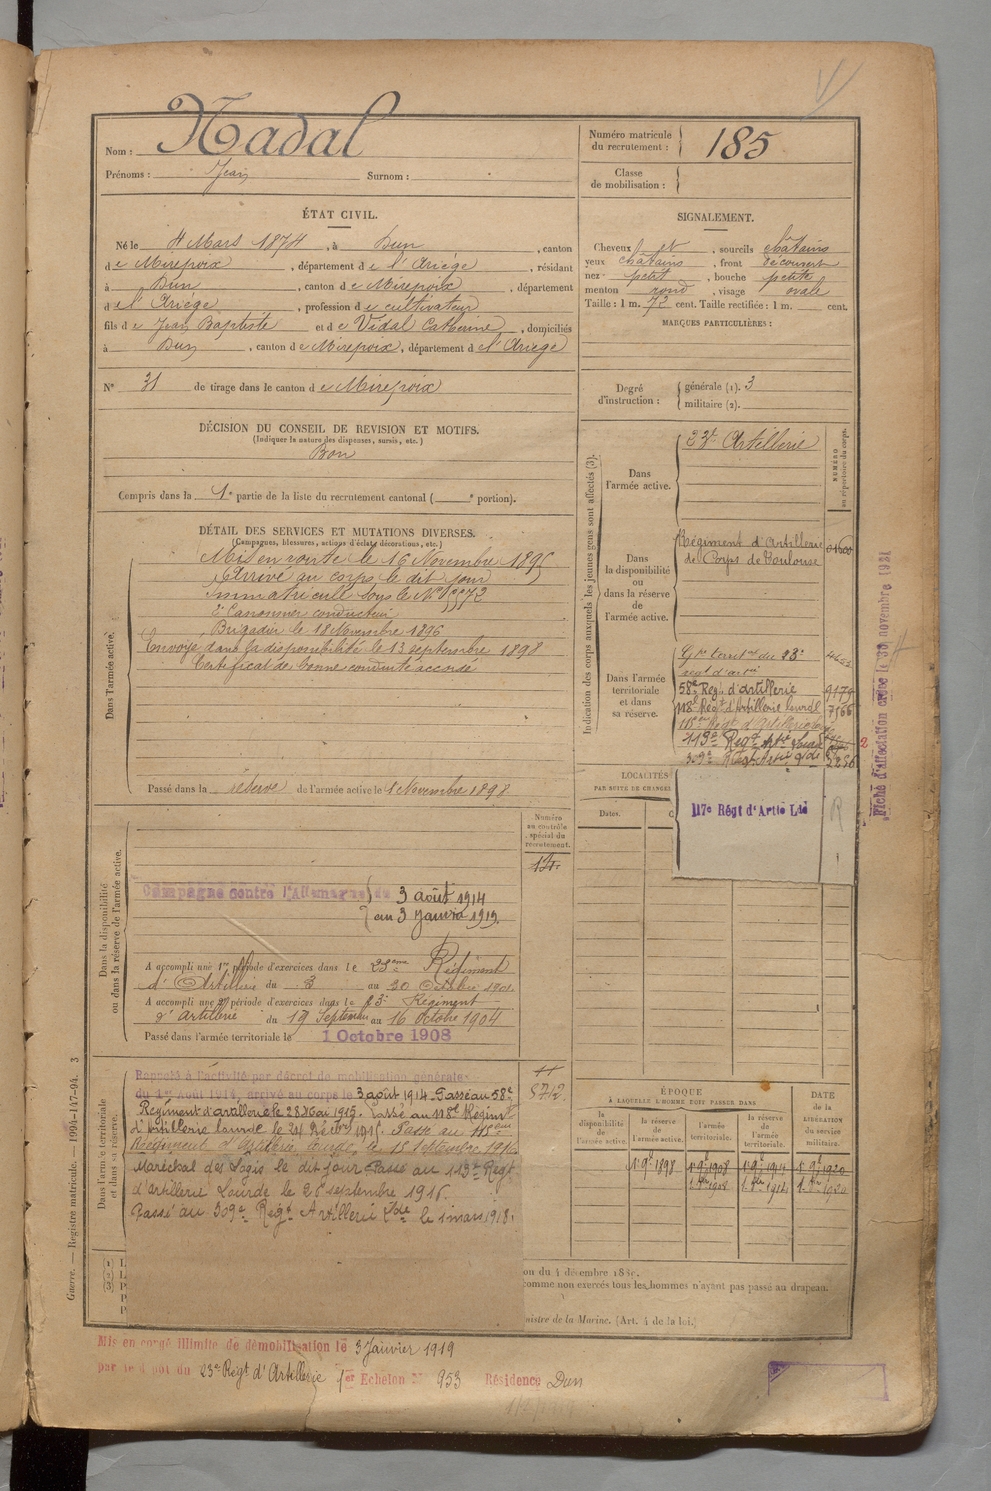 Nadal
Nom :
Prénoms : Jean Surnom :
Numéro matricule du recrutement : 185
Classe de mobilisation :
ÉTAT CIVIL.
Né le 4 Mars 1874, à Dun, canton
de Mirepoix, département de l'Ariège, résidant
à Dun, canton de Mirepoix, département
de l'Ariège, profession de cultivateur
fils de Jean Baptiste et de Vidal Catherine, domiciliés
à Dun, canton de Mirepoix, département de l'Ariège
N° 31 de tirage dans le canton de Mirepoix
DÉCISION DU CONSEIL DE REVISION ET MOTIFS.
(Indiquer la nature des dispenses, sursis, etc.)
Bon
Compris dans la 1e partie de la liste du recrutement cantonal ( e portion).
SIGNALEMENT.
Cheveux et, sourcils châtains
yeux châtains, front découvert
nez petit, bouche petite
menton rond, visage ovale
Taille : 1 m. 72 cent. Taille rectifiée : 1 m. cent.
MARQUES PARTICULIÈRES :
Degré d'instruction : générale (1). 3
militaire (2).
DÉTAIL DES SERVICES ET MUTATIONS DIVERSES.
(Campagnes, blessures, actions d'éclat, décorations, etc.)
Dans l'armée active.
Mis en route le 16 Novembre 1895
Arrivé au corps le dit jour
Immatriculé sous le N°
2e Canonnier conducteur
Brigadier le 18 Novembre 1896
Envoyé dans la disponibilité le 13 septembre 1898
Certificat de bonne conduite accordé
Passé dans la réserve de l'armée active le 1 Novembre 1898
Indication des corps auxquels les jeunes gens sont affectés (3).
NUMÉRO au répertoire du corps.
Dans l'armée active.
23e Artillerie
Dans la disponibilité ou dans la réserve de l'armée active.
Régiment d'Artillerie
de Corps de Toulouse
Dans l'armée territoriale et dans sa réserve.
Gpe territal du 23e
regt d'artie
58e Regt d'Artillerie 9179
118e Regt d'Artillerie lourde 7566
115e Regt d'Artillerie
113e Regt Artie Lourde
309e Regt Artie 2256
LOCALITÉS
PAR SUITE DE CHANGE
Dates.
117e Régt d'Artie Lde
R
Fiche d'affectation créée le 30 novembre 1931
Numéro au contrôle spécial du recrutement.
Dans la disponibilité ou dans la réserve de l'armée active.
Campagne contre l'Allemagne du 3 août 1914
au 3 Janvier 1919.
A accompli une 1re période d'exercices dans le 23eme Régiment
d'Artillerie du 3 au 30 Octobre 1901
A accompli une 2e période d'exercices dans le 23e Régiment
d'Artillerie du 19 Septembre au 16 octobre 1904
Passé dans l'armée territoriale le 1 Octobre 1908
Dans l'armée territoriale et dans sa réserve.
Rappelé à l'activité par décret de mobilisation générale
du 1er Août 1914, arrivé au corps le 3 août 1914. Passé au 58e
Régiment d'artillerie le 28 Mai 1915. Passé au 118e Régiment
d'artillerie lourde le 21 Décbre 1915. Passé au 115eme
Régiment d'Artillerie Lourde, le 15 septembre 1916.
Maréchal des Logis le dit jour Passé au 113e Regt
d'artillerie Lourde le 26 septembre 1916.
Passé au 309e Regt Artillerie Lde le 1 mars 1918.
5742.
ÉPOQUE
À LAQUELLE L'HOMME DOIT PASSER DANS
la disponibilité de l'armée active.
la réserve de l'armée active.
l'armée territoriale.
la réserve de l'armée territoriale.
DATE de la LIBÉRATION du service militaire.
1er 9bre 1898 1er 9bre 1908 1er 9bre 1914 1er 9bre 1920
1 8bre 1908 1 8bre 1914 1 8bre 1920
comme non exercés tous les hommes n'ayant pas passé au drapeau.
nistre de la Marine. (Art. 4 de la loi.)
Guerre. — Registre matricule. — 1994-147-94. 3
Mis en congé illimité de démobilisation le 3 Janvier 1919
par le dépôt du 23e Régt d'Artillerie 1er Echelon N° 953 Résidence Dun